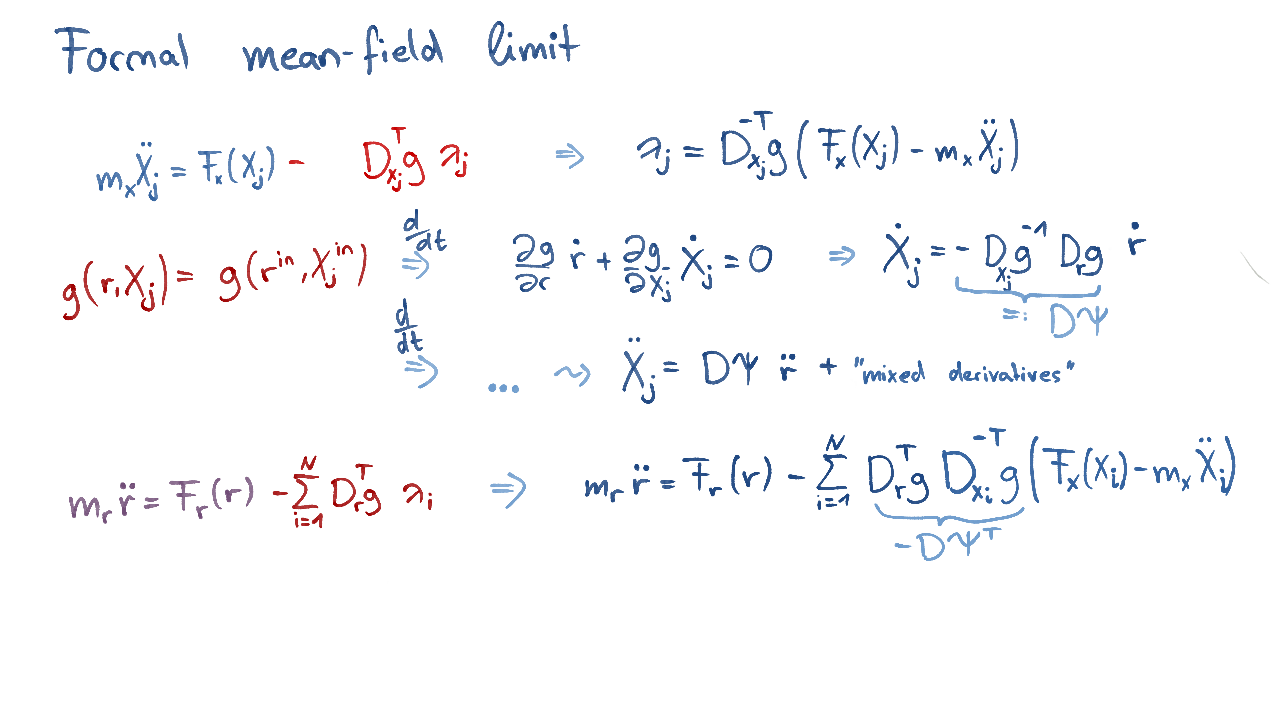 Formal mean-field limit
m_x Ẍ_j = F_x(X_j) - D_{x_j}^T g λ_j ⇒ λ_j = D_{x_j}^{-T} g (F_x(X_j) - m_x Ẍ_j)
g(r, X_j) = g(r^{in}, X_j^{in}) d/dt ⇒ ∂g/∂r ṙ + ∂g/∂X_j Ẋ_j = 0 ⇒ Ẋ_j = - D_{x_j} g^{-1} D_r g ṙ
=: DΨ
d/dt ⇒ ... ⇝ Ẍ_j = DΨ r̈ + "mixed derivatives"
m_r r̈ = F_r(r) - ∑_{i=1}^N D_r^T g λ_i ⇒ m_r r̈ = F_r(r) - ∑_{i=1}^N D_r^T g D_{x_i}^{-T} g (F_x(X_i) - m_x Ẍ_i)
-DΨ^T